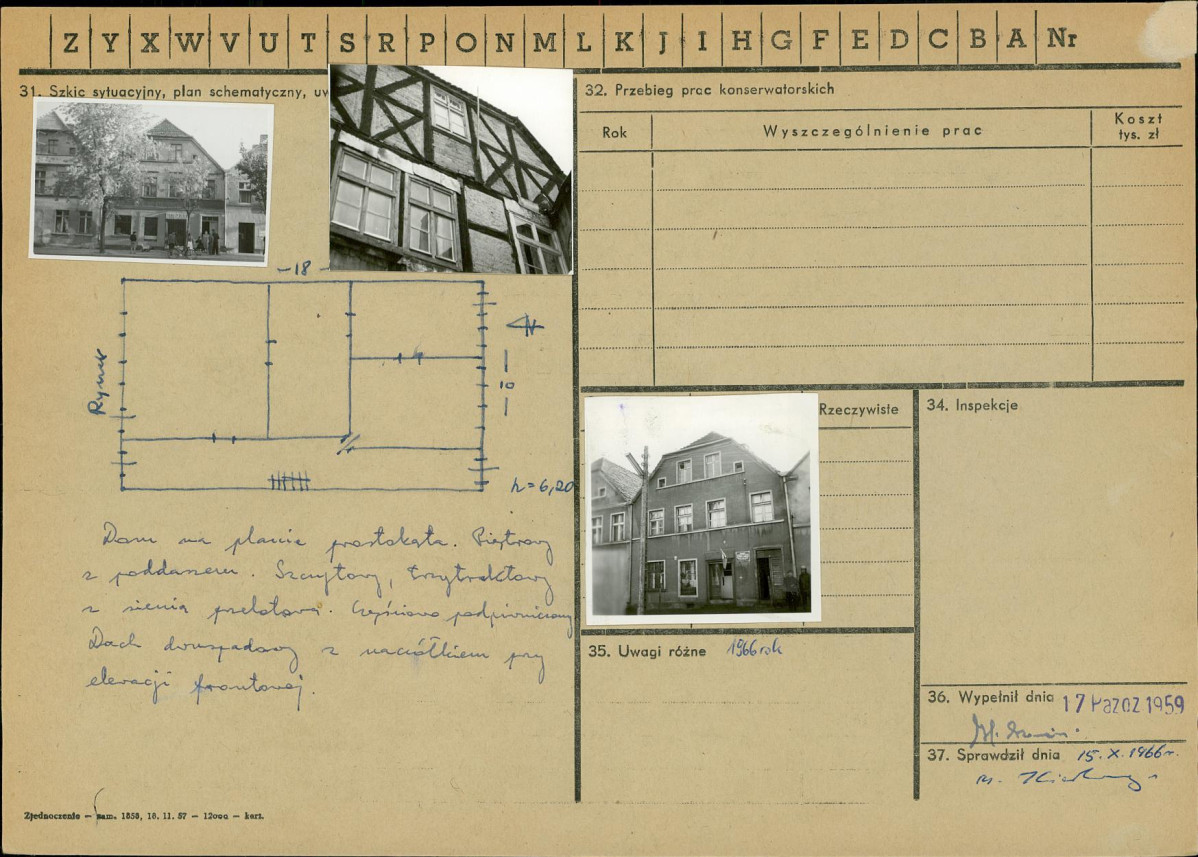 Z Y X W V U T S R P O N M L K J I H G F E D C B A Nr
31. Szkic sytuacyjny, plan schematyczny, uw
32. Przebieg prac konserwatorskich
Rok
Wyszczególnienie prac
Koszt
tys. zł
-18-
Rynek
-10-
N
h=6,20
Dom na planie prostokąta. Piętrowy
z poddaszem. Szczytowy, trzytraktowy
z sienią przelotową. Częściowo podpiwniczony
Dach dwuspadowy z naczółkiem przy
elewacji frontowej.
Rzeczywiste
34. Inspekcje
35. Uwagi różne 1966 rok
36. Wypełnił dnia 17 PAZDZ 1959
37. Sprawdził dnia 15.X.1966 r.
Zjednoczenie – zam. 1858, 18. 11. 57 – 12000 – kart.